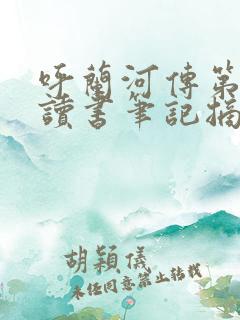 呼蘭河傳第
讀書筆記摘
胡穎儀
未任同意禁止转载